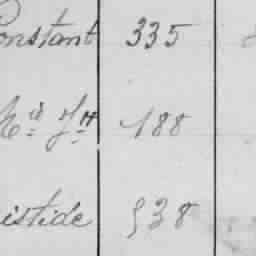 Constant 335
188
istide 938